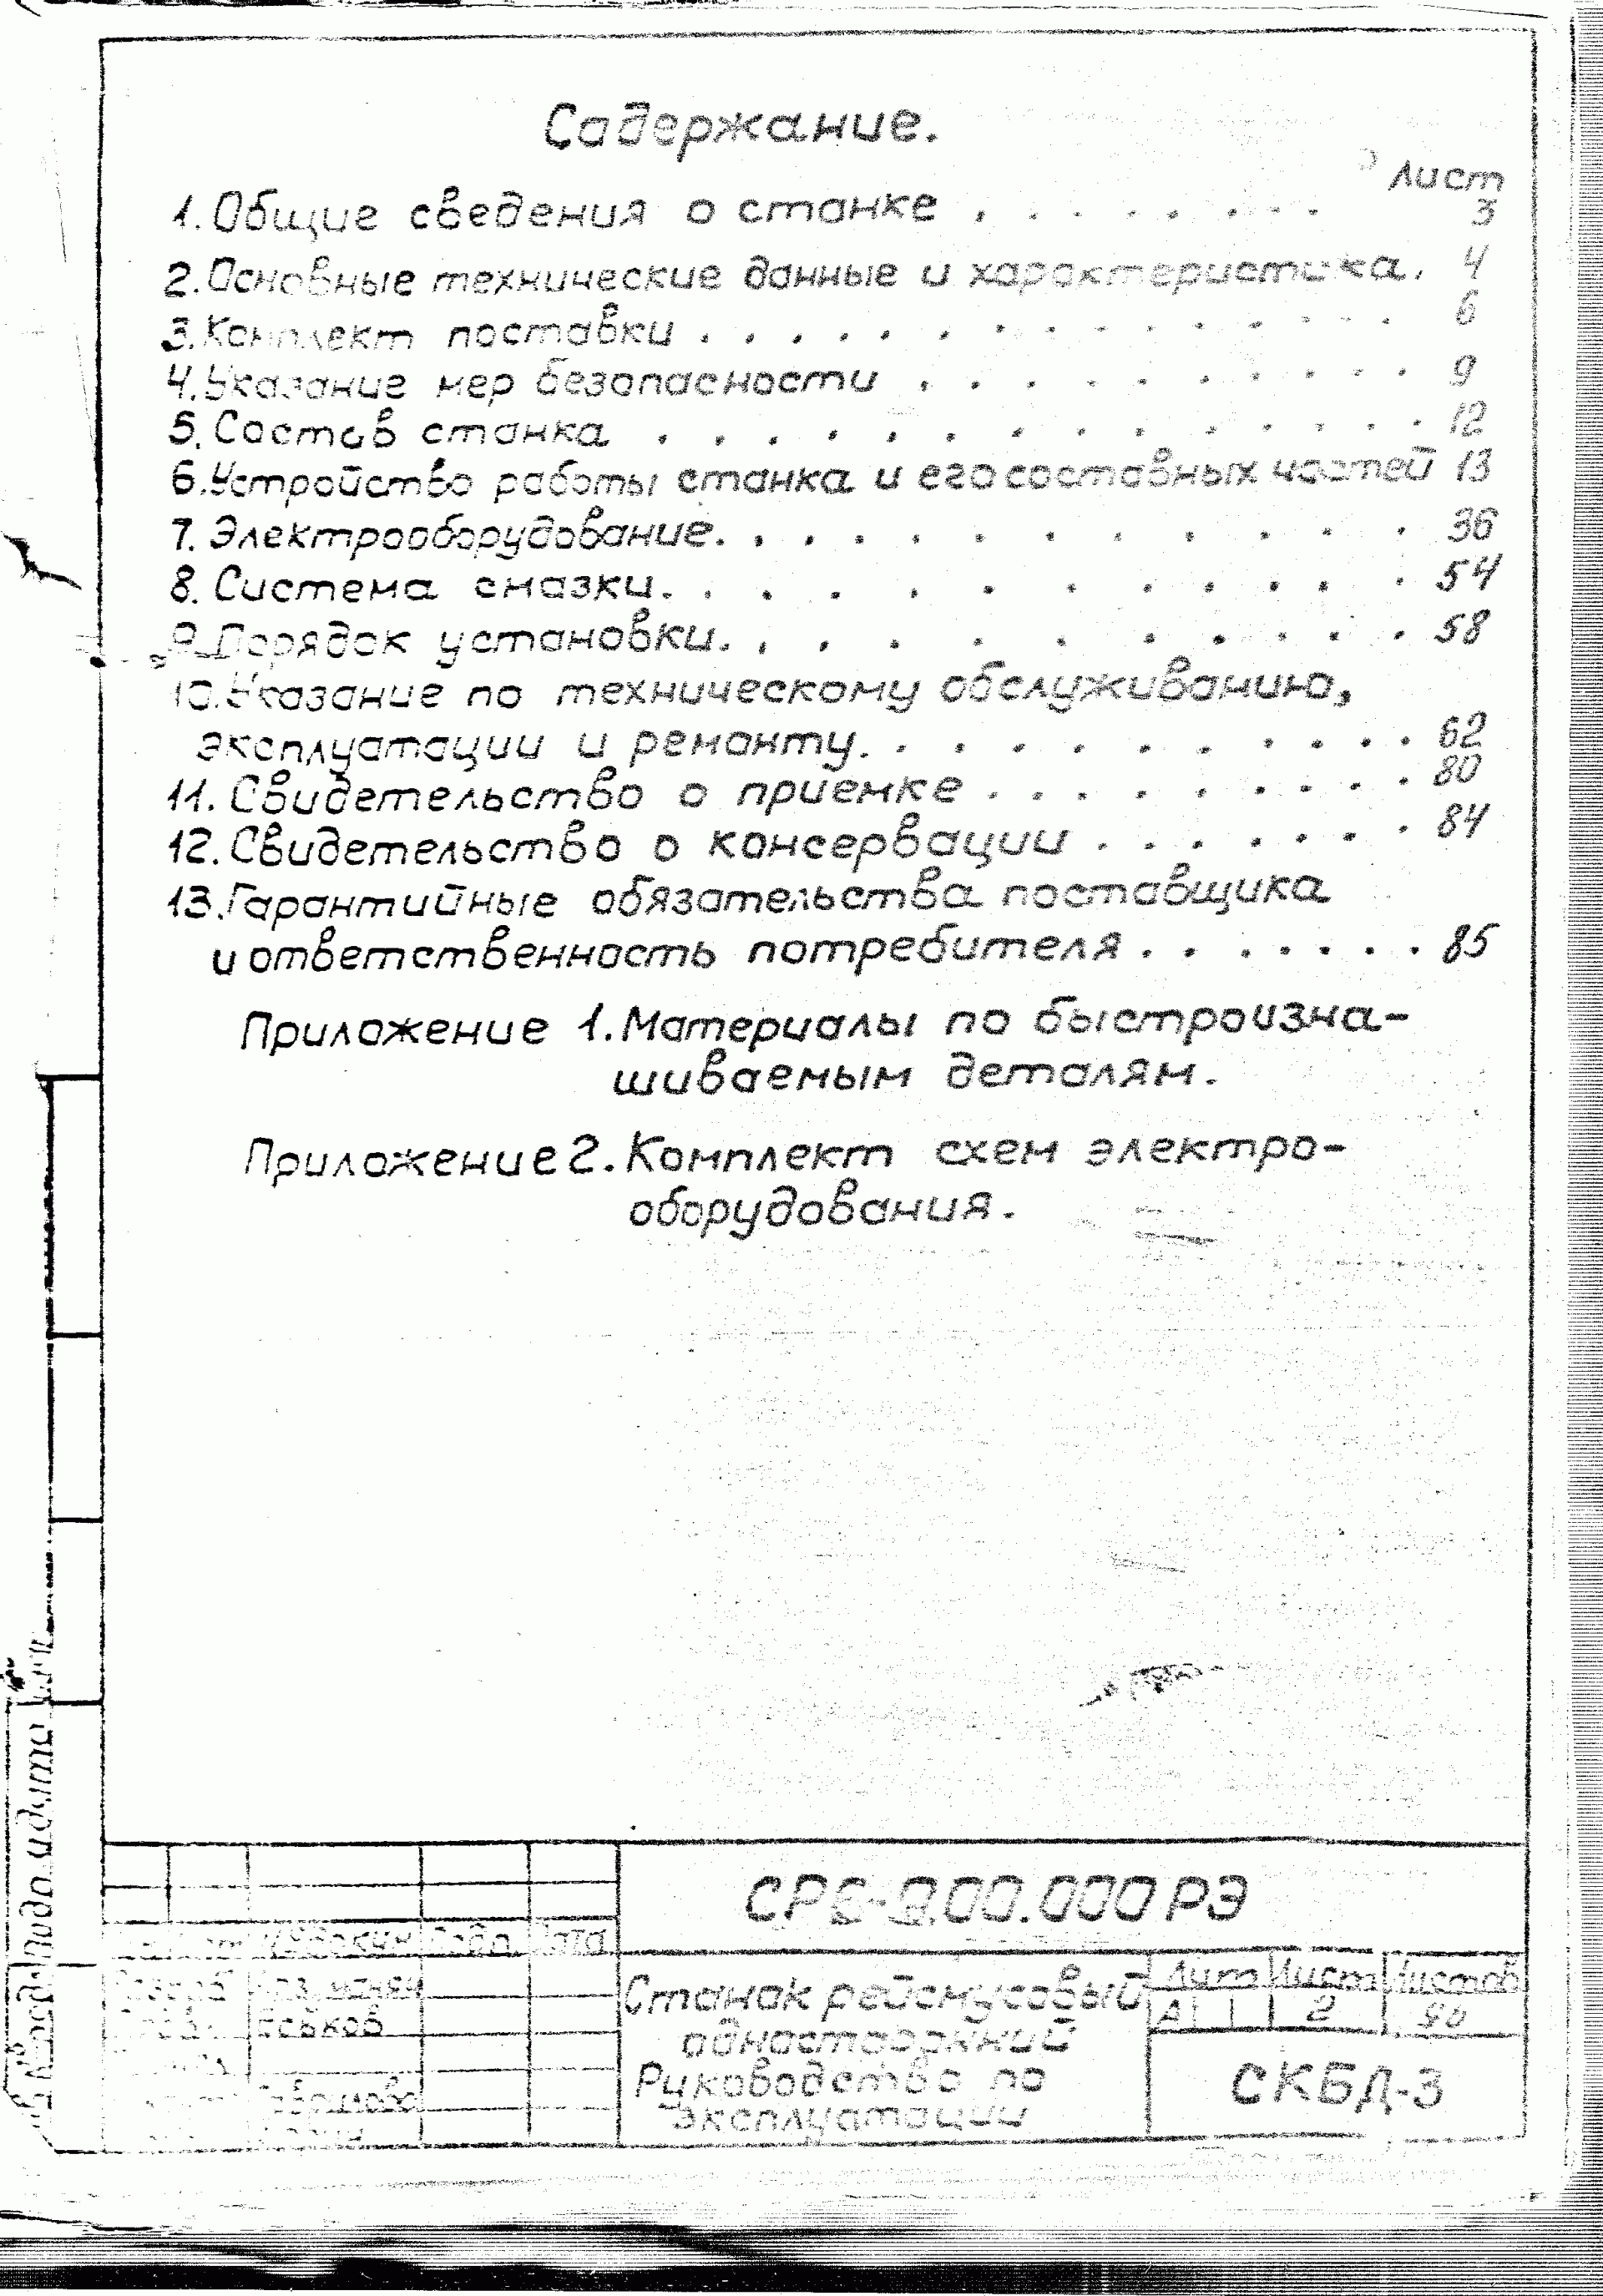 Содержание.
Лист
1. Общие сведения о станке . . . . . . . . 3
2. Основные технические данные и характеристика. 4
3. Комплект поставки . . . . . . . . . . . . . . 6
4. Указание мер безопасности . . . . . . . . . . 9
5. Состав станка . . . . . . . . . . . . . . 12
6. Устройство работы станка и его составных частей 13
7. Электрооборудование. . . . . . . . . . . . . 36
8. Система смазки. . . . . . . . . . . . 54
9. Порядок установки. . . . . . . . . . . . 58
10. Указание по техническому обслуживанию,
эксплуатации и ремонту. . . . . . . . . . . . 62
11. Свидетельство о приемке . . . . . . . . . 80
12. Свидетельство о консервации . . . . . . . 84
13. Гарантийные обязательства поставщика
и ответственность потребителя . . . . . . . 85
Приложение 1. Материалы по быстроизна-
шиваемым деталям.
Приложение 2. Комплект схем электро-
оборудования.
СР6-9.00.000 РЭ
Станок рейсмусовый
односторонний
Руководство по
эксплуатации
Лит Лист Листов
А 2
СКБД-3
№ докум Подп. Дата
Подп. и дата